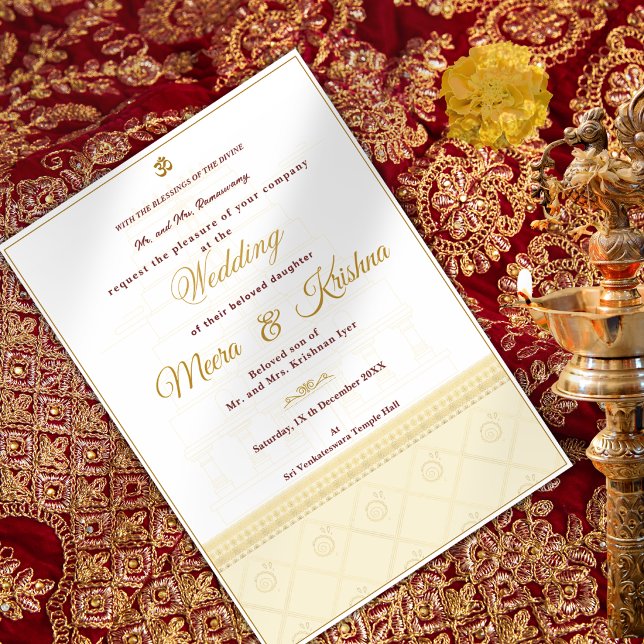 ॐ
WITH THE BLESSINGS OF THE DIVINE
Mr. and Mrs. Ramaswamy
request the pleasure of your company
at the
Wedding
of their beloved daughter
Meera & Krishna
Beloved son of
Mr. and Mrs. Krishnan Iyer
Saturday, IX th December 20XX
At
Sri Venkateswara Temple Hall